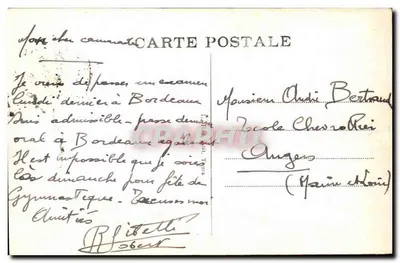 Mon cher camarade
CARTE POSTALE
Je viens de passer un examen
lundi dernier à Bordeaux
suis admissible - passe demain
oral à Bordeaux également
Il est impossible que je sois
làs dimanche pour fête de
Gymnastique - Excuses moi
Amitiés
Robert
Monsieur André Bertrand
Angers
(Maine et Loire)